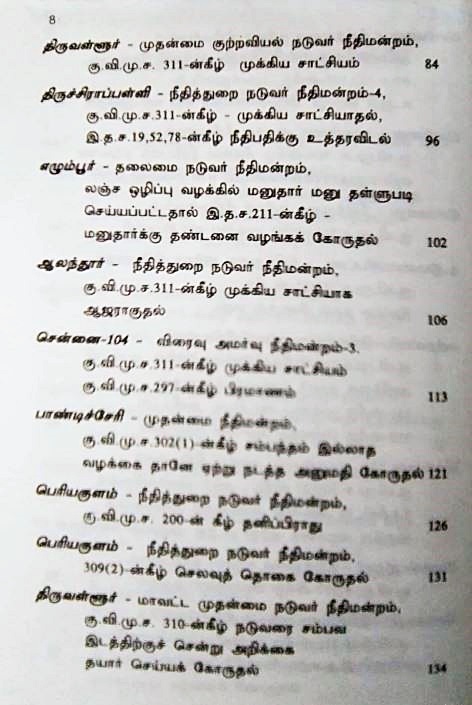 8
திருவள்ளூர் - முதன்மை குற்றவியல் நடுவர் நீதிமன்றம்,
கு.வி.மு.ச. 311-ன்கீழ் முக்கிய சாட்சியம் 84
திருச்சிராப்பள்ளி - நீதித்துறை நடுவர் நீதிமன்றம்-4,
கு.வி.மு.ச.311-ன்கீழ் - முக்கிய சாட்சியாதல்,
இ.த.ச.19,52,78-ன்கீழ் நீதிபதிக்கு உத்தரவிடல் 96
எழும்பூர் - தலைமை நடுவர் நீதிமன்றம்,
லஞ்ச ஒழிப்பு வழக்கில் மனுதார் மனு தள்ளுபடி
செய்யப்பட்டதால் இ.த.ச.211-ன்கீழ் -
மனுதார்க்கு தண்டனை வழங்கக் கோருதல் 102
ஆலந்தூர் - நீதித்துறை நடுவர் நீதிமன்றம்,
கு.வி.மு.ச.311-ன்கீழ் முக்கிய சாட்சியாக
ஆஜராகுதல் 106
சென்னை-104 - விரைவு அமர்வு நீதிமன்றம்-3.
கு.வி.மு.ச.311-ன்கீழ் முக்கிய சாட்சியம்
கு.வி.மு.ச.297-ன்கீழ் பிரமாணம் 113
பாண்டிச்சேரி - முதன்மை நீதிமன்றம்,
கு.வி.மு.ச.302(1)-ன்கீழ் சம்பந்தம் இல்லாத
வழக்கை தானே ஏற்று நடத்த அனுமதி கோருதல் 121
பெரியகுளம் - நீதித்துறை நடுவர் நீதிமன்றம்,
கு.வி.மு.ச. 200-ன் கீழ் தனிப்பிராது 126
பெரியகுளம் - நீதித்துறை நடுவர் நீதிமன்றம்,
309(2)-ன்கீழ் செலவுத் தொகை கோருதல் 131
திருவள்ளூர் - மாவட்ட முதன்மை நடுவர் நீதிமன்றம்,
கு.வி.மு.ச. 310-ன்கீழ் நடுவரை சம்பவ
இடத்திற்குச் சென்று அறிக்கை
தயார் செய்யக் கோருதல் 134